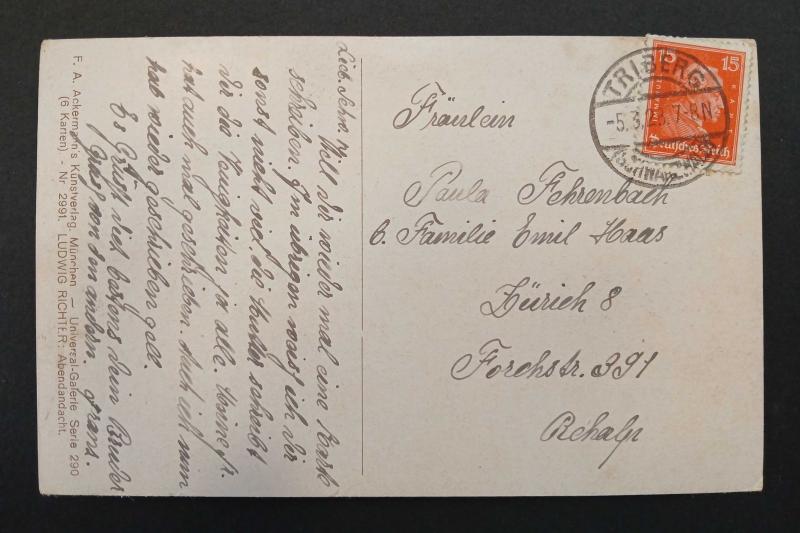 Lieb. Schw. Will dir wieder mal eine Karte
schreiben. Im übrigen weiß ich dir
sonst nicht viel die Mutter schreibt
dir die Neuigkeiten ja alle.
hat auch mal geschrieben. Auch ich nun
hab wieder geschrieben gell.
Es Grüßt dich bestens dein Bruder
Gruß von den andern. Franz.
F. A. Ackermann's Kunstverlag, München — Universal-Galerie Serie 290
(6 Karten) - Nr 2991. LUDWIG RICHTER: Abendandacht.
TRIBERG
-5.3. 7-8N
(SCHWARZWALD)
15 15
IMMANUEL KANT
Deutsches Reich
Fräulein
Paula Fehrenbach
b. Familie Emil Haas
Zürich 8
Forchstr. 391
Rehalp